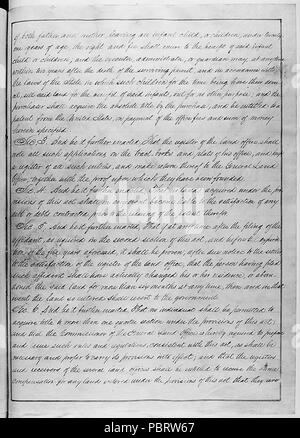 of both father and mother, leaving an infant child, or children, under twenty
one years of age, the right and fee shall enure to the benefit of said infant
child or children; and the executor, administrator, or guardian may, at any time
within two years after the death of the surviving parent, and in accordance with
the laws of the State in which such children for the time being have their domi-
cil, sell said land for the benefit of said infants, but for no other purpose; and the
purchaser shall acquire the absolute title by the purchase, and be entitled to a
patent from the United States, on payment of the office fees and sum of money
herein specified.
Sec. 3. And be it further enacted, That the register of the land office shall
note all such applications on the tract books and plats of his office, and keep
a register of all such entries, and make return thereof to the General Land
Office, together with the proof upon which they have been founded.
Sec. 4. And be it further enacted, That all lands acquired under the pro-
visions of this act shall in no event become liable to the satisfaction of any
debt or debts contracted prior to the issuing of the patent therefor.
Sec. 5. And be it further enacted, That if, at any time after the filing of the
affidavit, as required in the second section of this act, and before the expira-
tion of the five years aforesaid, it shall be proven, after due notice to the settler,
to the satisfaction of the register of the land office, that the person having filed
such affidavit shall have actually changed his or her residence, or aban-
doned the said land for more than six months at any time, then and in that
event the land so entered shall revert to the government.
Sec. 6. And be it further enacted, That no individual shall be permitted to
acquire title to more than one quarter section under the provisions of this act;
and that the Commissioner of the General Land Office is hereby required to prepare
and issue such rules and regulations, consistent with this act, as shall be
necessary and proper to carry its provisions into effect; and that the registers
and receivers of the several land offices shall be entitled to receive the same
compensation for any lands entered under the provisions of this act that they are now
alamy
Image ID: PBRW67
www.alamy.com